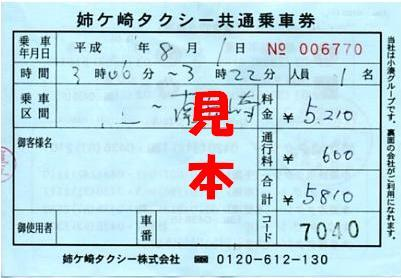 姉ケ崎タクシー共通乗車券
乗車年月日 平成 年 8月 1日 No 006770
時間 3時06分~3時22分 人員 1名
乗車区間 ~ 南 崎 料金 ¥ 5,210
御客様名 通行料 ¥ 600
合計 ¥ 5810
御使用者 車番 コード 7040
姉ケ崎タクシー株式会社 0120-612-130
当社は小湊グループです。裏面の会社がご利用になれます。
見本